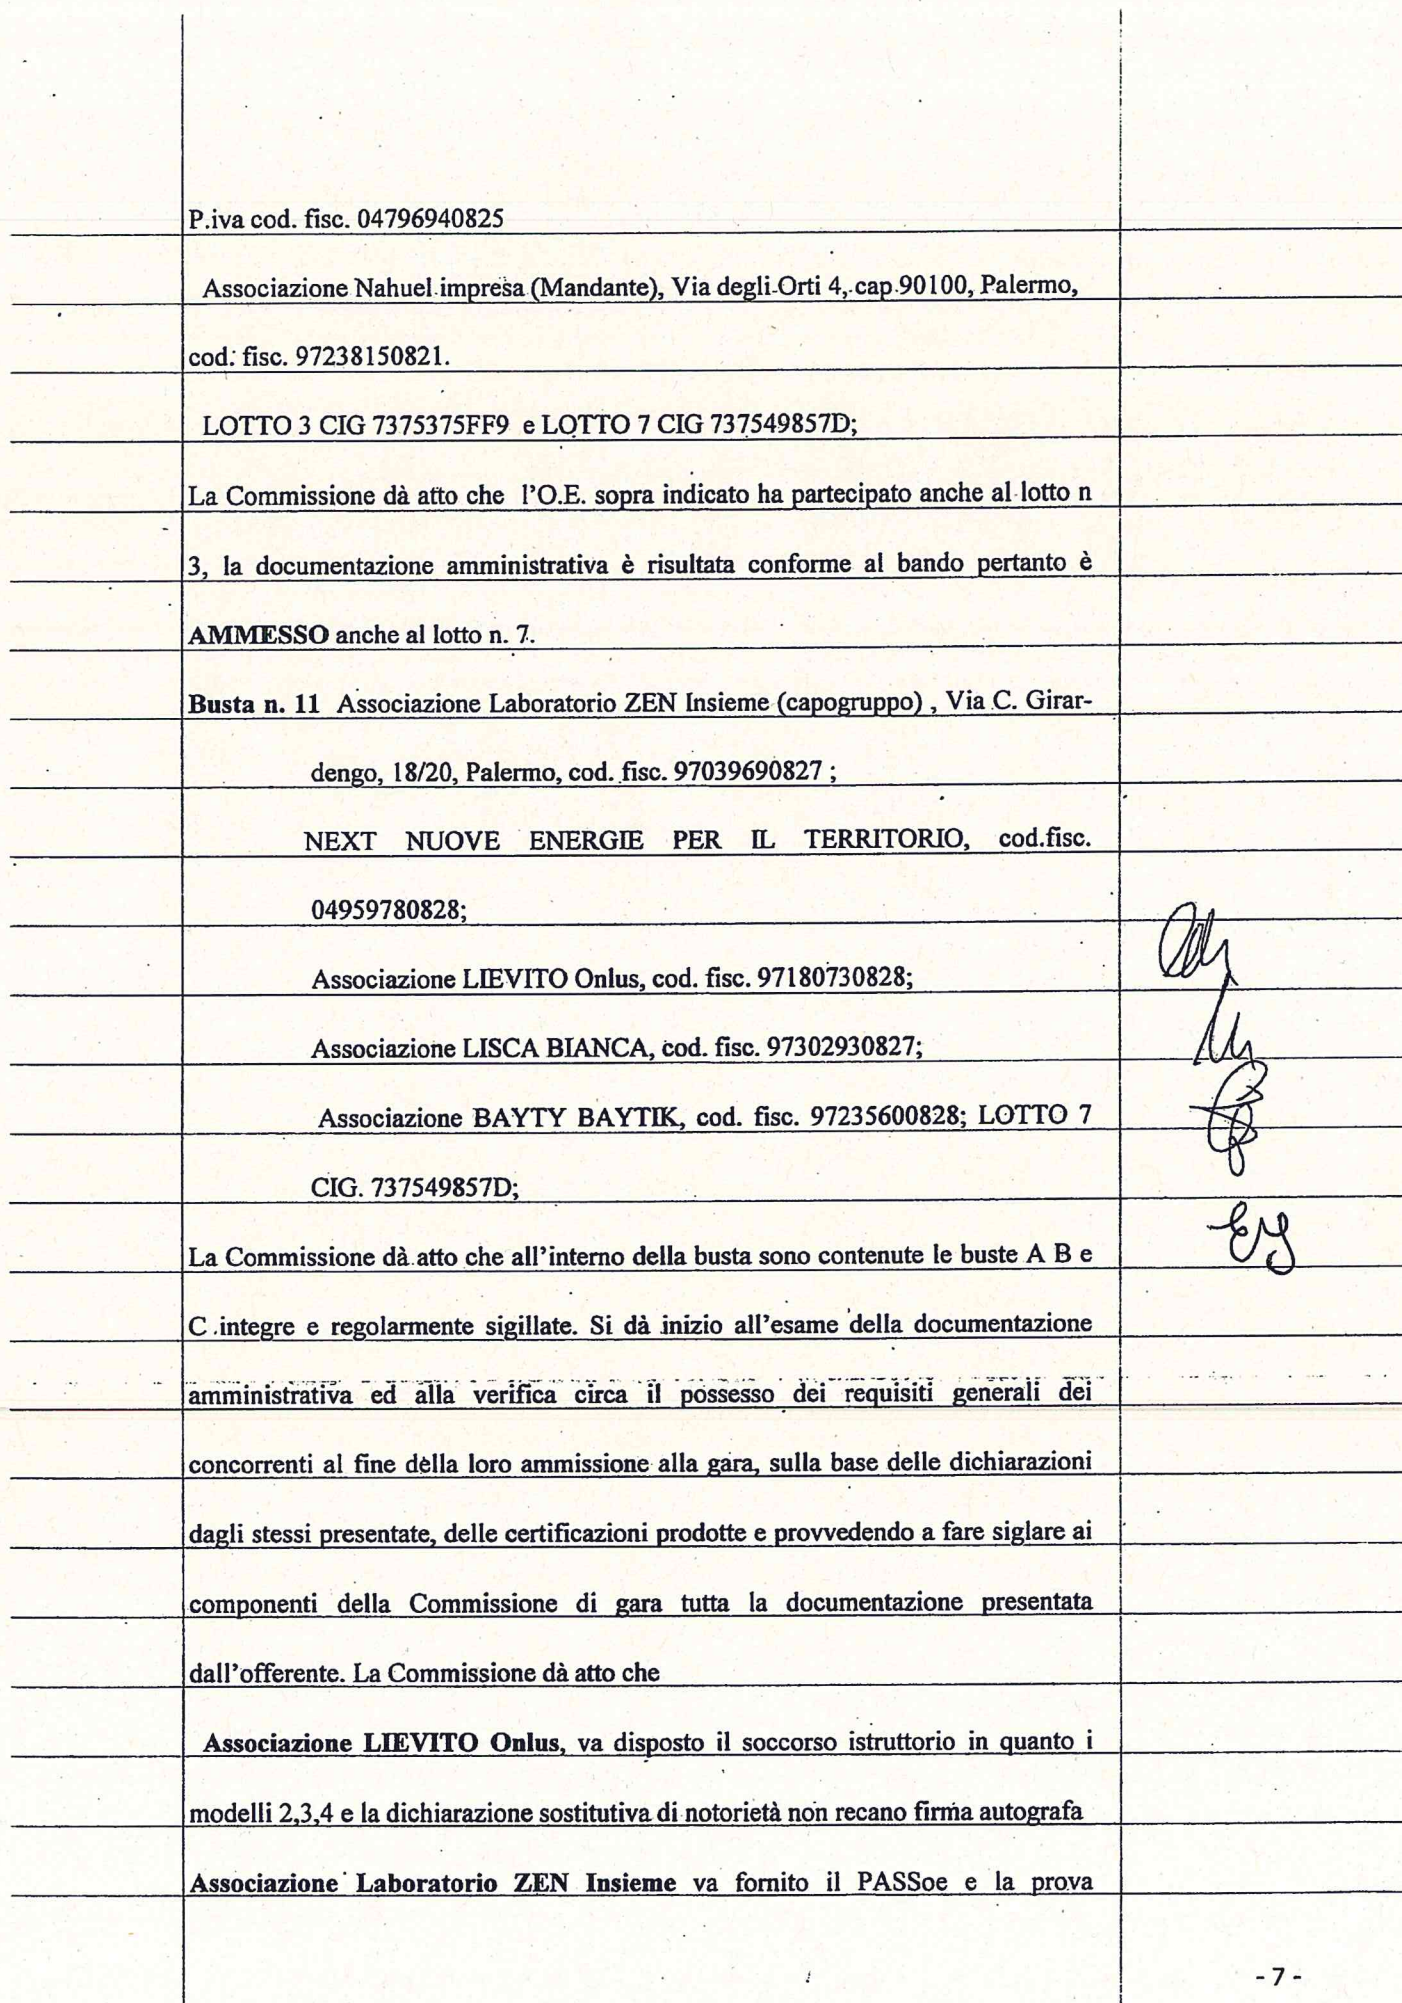 P.iva cod. fisc. 04796940825
Associazione Nahuel impresa (Mandante), Via degli Orti 4, cap 90100, Palermo,
cod. fisc. 97238150821.
LOTTO 3 CIG 7375375FF9 e LOTTO 7 CIG 737549857D;
La Commissione dà atto che l'O.E. sopra indicato ha partecipato anche al lotto n
3, la documentazione amministrativa è risultata conforme al bando pertanto è
AMMESSO anche al lotto n. 7.
Busta n. 11 Associazione Laboratorio ZEN Insieme (capogruppo) , Via C. Girar-
dengo, 18/20, Palermo, cod. fisc. 97039690827 ;
NEXT NUOVE ENERGIE PER IL TERRITORIO, cod.fisc.
04959780828;
Associazione LIEVITO Onlus, cod. fisc. 97180730828;
Associazione LISCA BIANCA, cod. fisc. 97302930827;
Associazione BAYTY BAYTIK, cod. fisc. 97235600828; LOTTO 7
CIG. 737549857D;
La Commissione dà atto che all'interno della busta sono contenute le buste A B e
C integre e regolarmente sigillate. Si dà inizio all'esame della documentazione
amministrativa ed alla verifica circa il possesso dei requisiti generali dei
concorrenti al fine della loro ammissione alla gara, sulla base delle dichiarazioni
dagli stessi presentate, delle certificazioni prodotte e provvedendo a fare siglare ai
componenti della Commissione di gara tutta la documentazione presentata
dall'offerente. La Commissione dà atto che
Associazione LIEVITO Onlus, va disposto il soccorso istruttorio in quanto i
modelli 2,3,4 e la dichiarazione sostitutiva di notorietà non recano firma autografa
Associazione Laboratorio ZEN Insieme va fornito il PASSoe e la prova
- 7 -